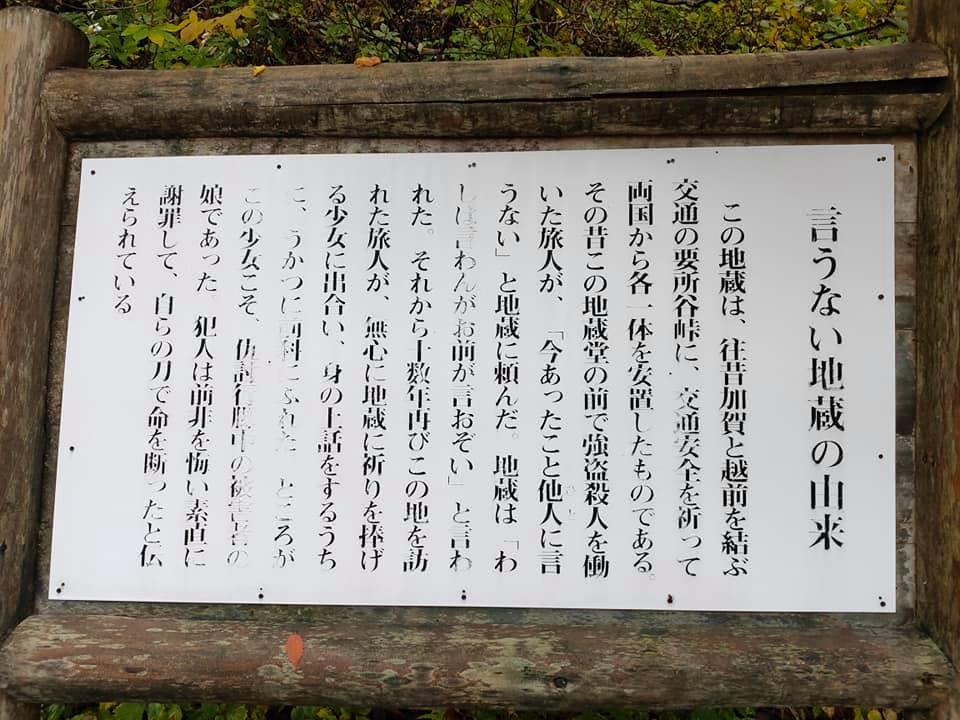 言うない地蔵の由来
この地蔵は、往昔加賀と越前を結ぶ
交通の要所谷峠に、交通安全を祈って
両国から各一体を安置したものである。
その昔この地蔵堂の前で強盗殺人を働
いた旅人が、「今あったこと他人に言
うない」と地蔵に頼んだ。地蔵は「わ
しは言わんがお前が言おぞい」と言わ
れた。それから十数年再びこの地を訪
れた旅人が、無心に地蔵に祈りを捧げ
る少女に出合い、身の上話をするうち
に、うかつに前科にふれた。ところが
この少女こそ、仇討行脚中の被害者の
娘であった。犯人は前非を悔い素直に
謝罪して、自らの刀で命を断ったと伝
えられている